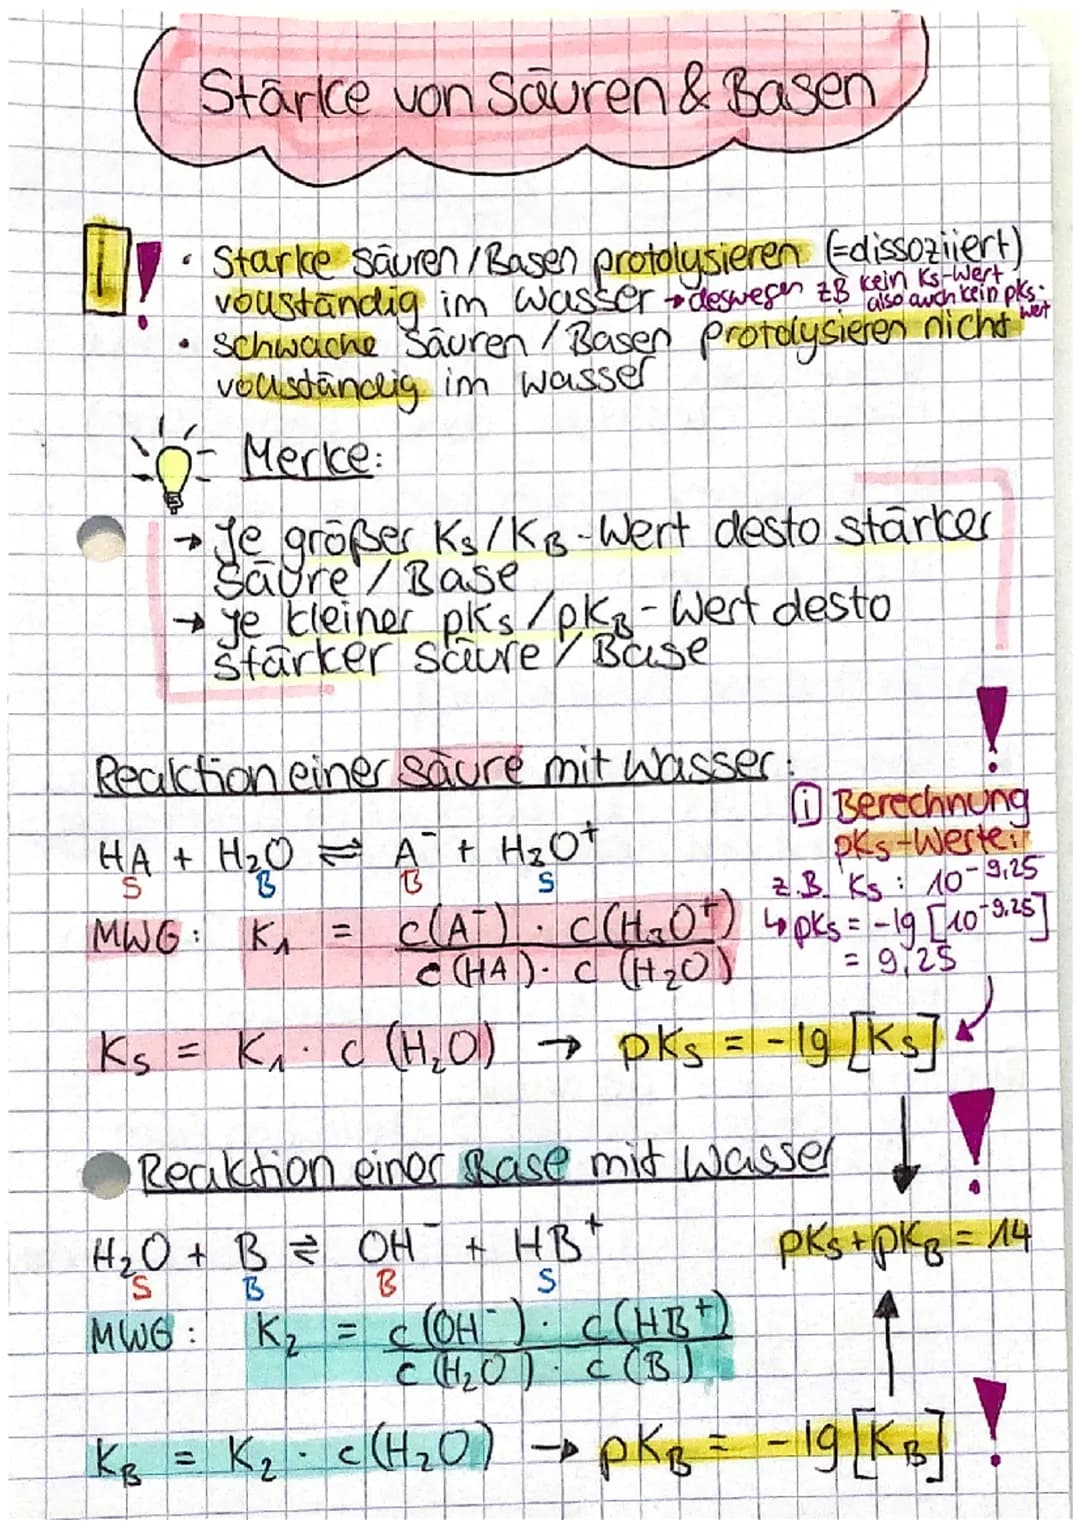 Stärke von Säuren & Basen
! • Starke Säuren/Basen protolysieren (=dissoziiert)
vollständig im Wasser → deswegen zB kein Ks-Wert,
also auch kein pKs-
wert
• schwache Säuren/Basen protolysieren nicht
vollständig im Wasser
Merke:
→ Je größer Ks/KB-Wert desto stärker
Säure/Base
→ je kleiner pKs/pKB-Wert desto
stärker Säure/Base
!
Reaktion einer Säure mit Wasser:
i Berechnung
pKs-Werte:
HA + H₂O ⇌ A⁻ + H₃O⁺
S B B S
z.B. Ks: 10^-9,25
↳ pKs = -lg [10^-9,25]
= 9,25
MWG: K₁ = c(A⁻) · c(H₃O⁺)
c(HA) · c(H₂O)
Ks = K₁ · c (H₂O) → pKs = -lg [Ks]
!
Reaktion einer Base mit Wasser
H₂O + B ⇌ OH⁻ + HB⁺
S B B S
pKs + pKB = 14
MWG: K₂ = c(OH⁻) · c(HB⁺)
c(H₂O) · c(B)
KB = K₂ · c(H₂O) → pKB = -lg[KB] !